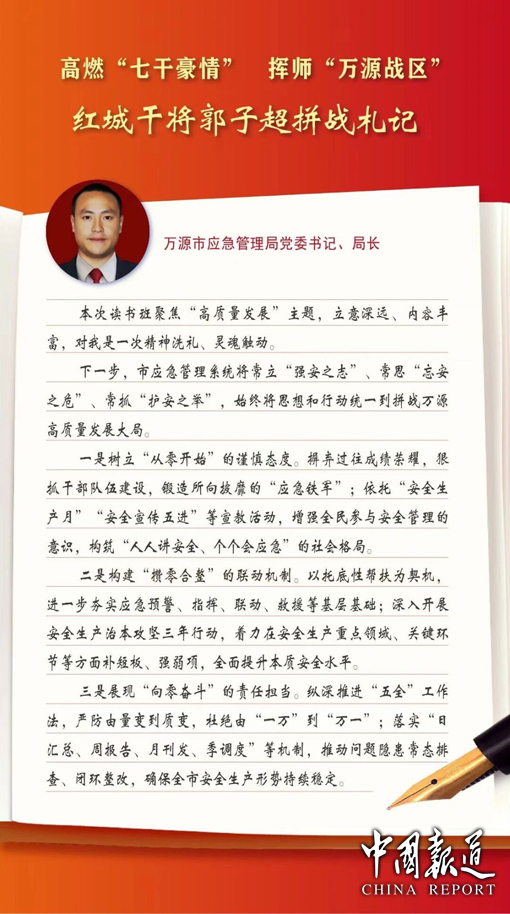 高燃“七干豪情” 挥师“万源战区”
红城干将郭子超拼战札记
万源市应急管理局党委书记、局长
本次读书班聚焦“高质量发展”主题，立意深远、内容丰
富，对我是一次精神洗礼、灵魂触动。
下一步，市应急管理系统将常立“强安之志”、常思“忘安
之危”、常抓“护安之举”，始终将思想和行动统一到拼战万源
高质量发展大局。
一是树立“从零开始”的谨慎态度。摒弃过往成绩荣耀，狠
抓干部队伍建设，锻造所向披靡的“应急铁军”；依托“安全生
产月”“安全宣传五进”等宣教活动，增强全民参与安全管理的
意识，构筑“人人讲安全、个个会应急”的社会格局。
二是构建“攒零合整”的联动机制。以托底性帮扶为契机，
进一步夯实应急预警、指挥、联动、救援等基层基础；深入开展
安全生产治本攻坚三年行动，着力在安全生产重点领域、关键环
节等方面补短板、强弱项，全面提升本质安全水平。
三是展现“向零奋斗”的责任担当。纵深推进“五全”工作
法，严防由量变到质变，杜绝由“一万”到“万一”；落实“日
汇总、周报告、月刊发、季调度”等机制，推动问题隐患常态排
查、闭环整改，确保全市安全生产形势持续稳定。
中國報道
CHINA REPORT